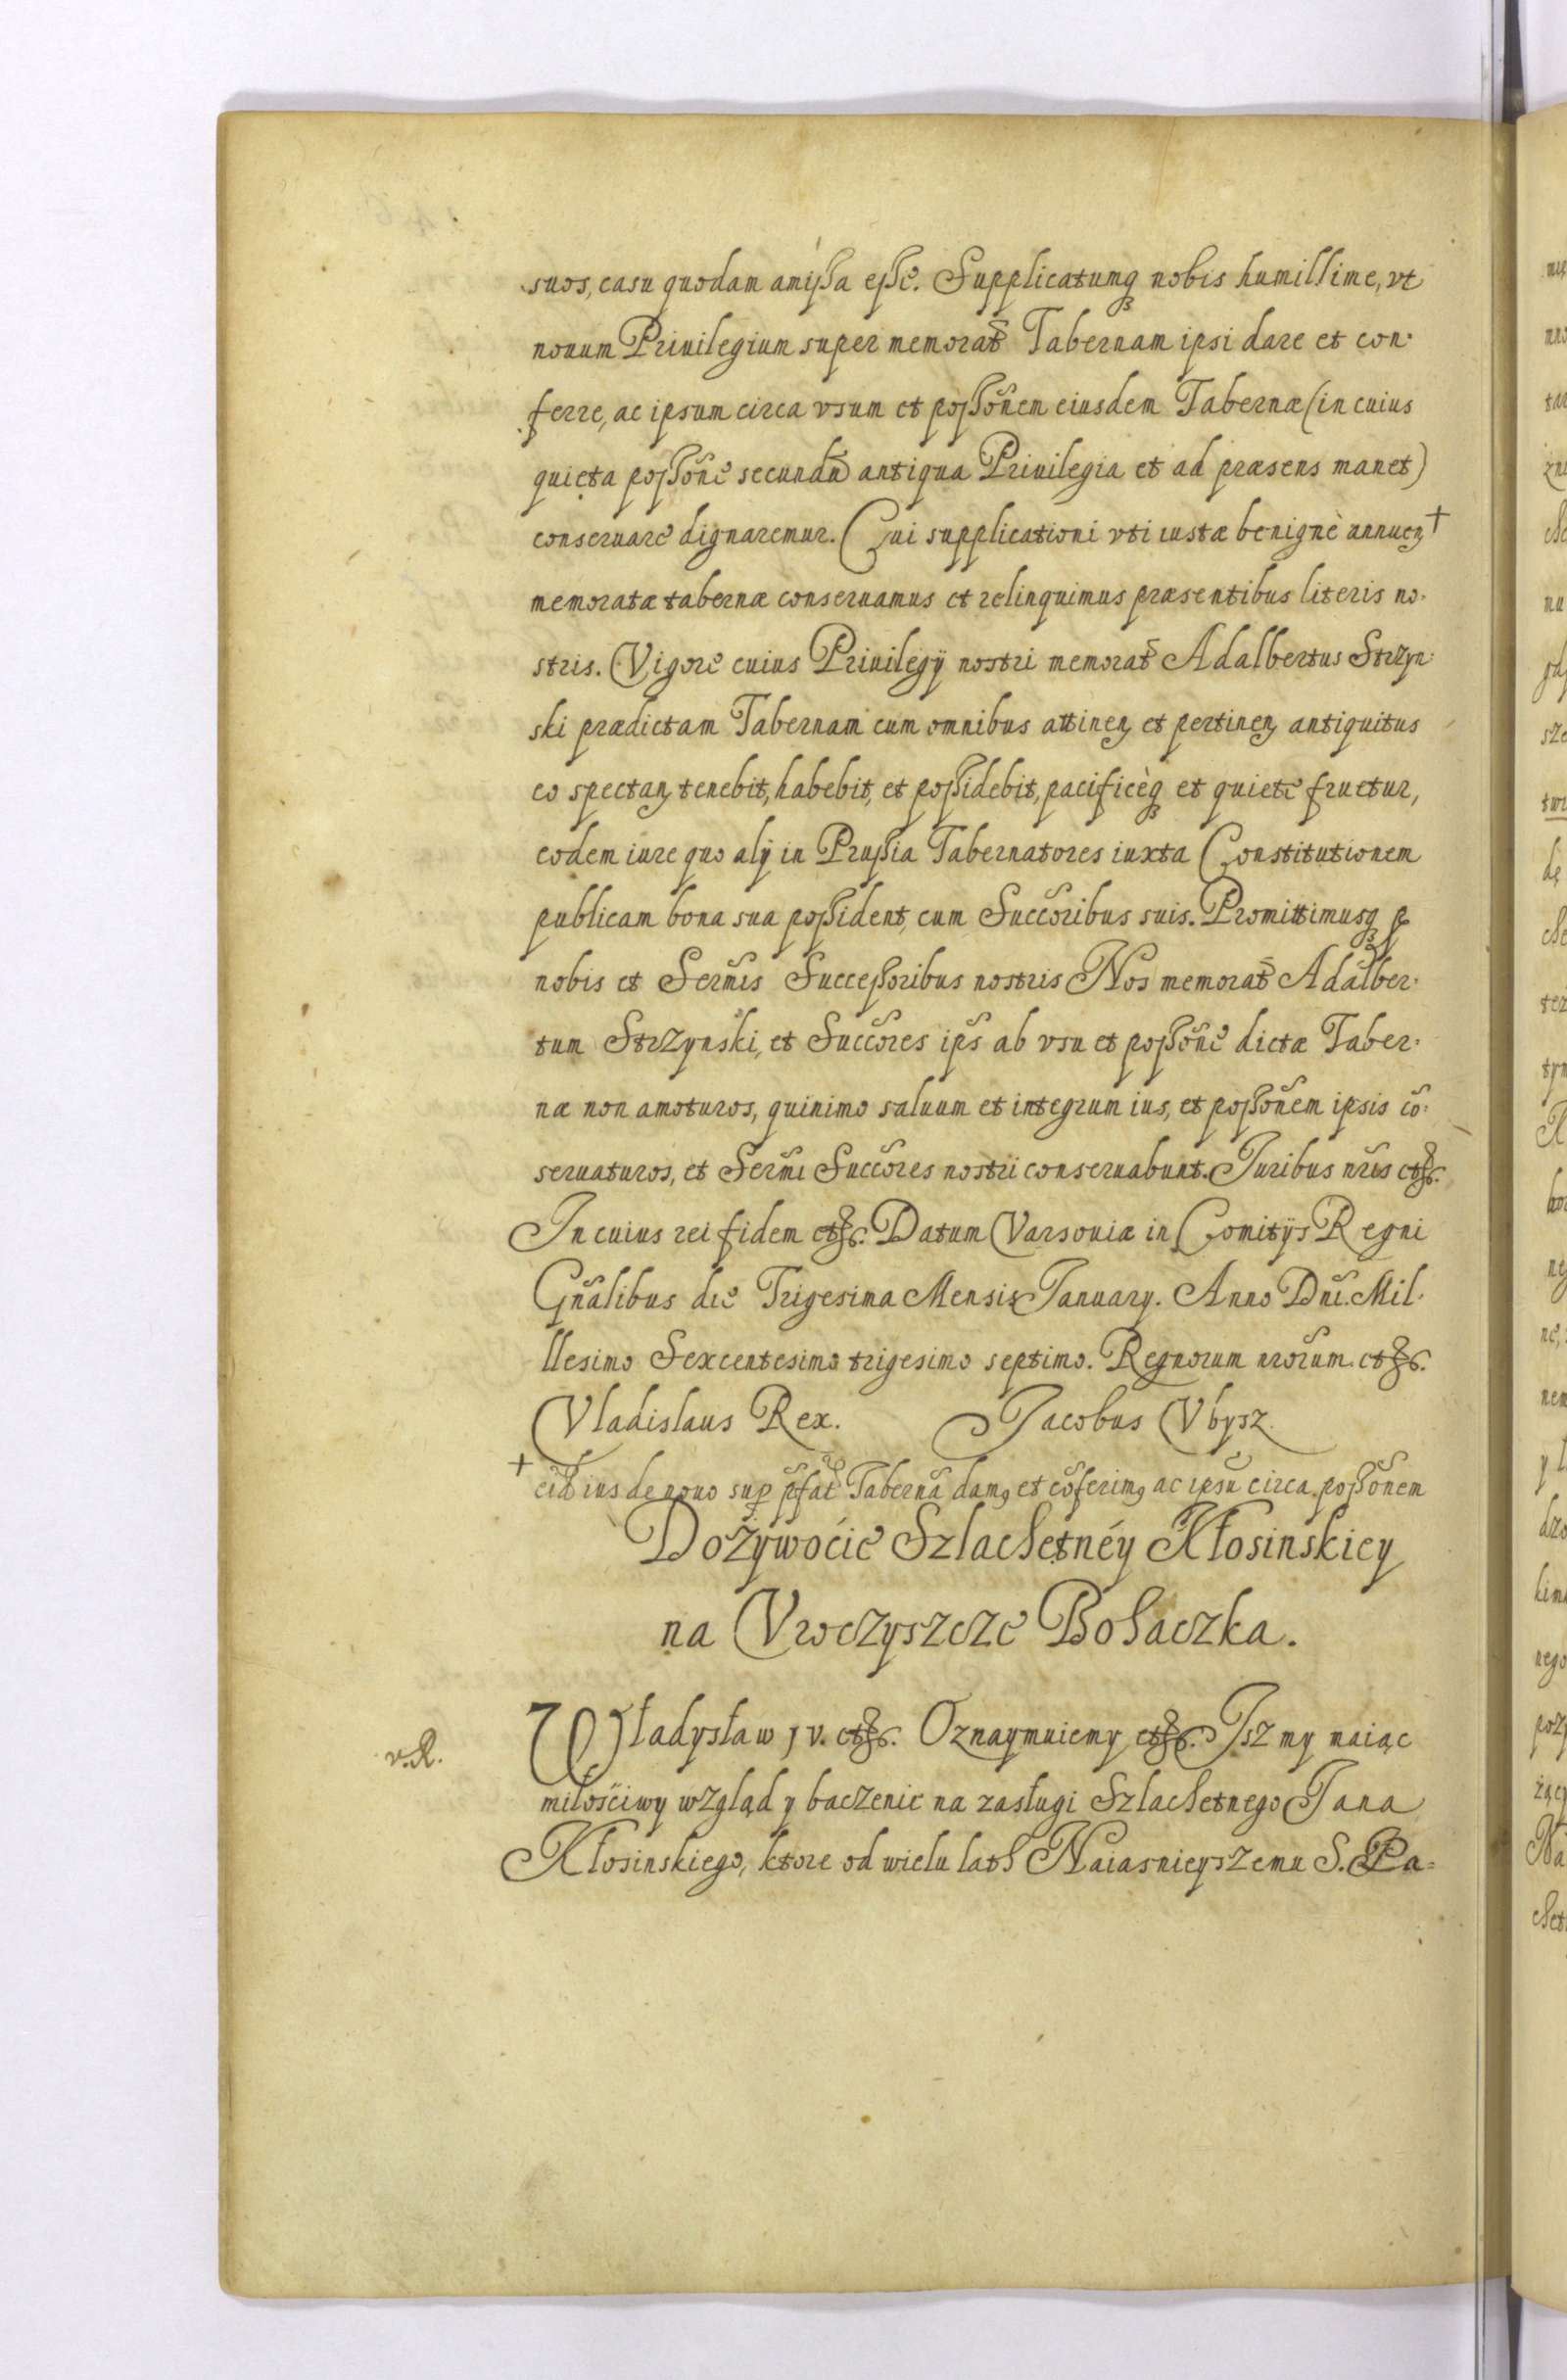 suos, casu quodam amissa esse. Supplicatumq nobis humillime, vt
nouum Priuilegium super memorat Tabernam ipsi dare et con-
ferre, ac ipsum circa vsum et possõnem eiusdem Tabernæ (in cuius
quieta possõne secundũ antiqua Priuilegia et ad præsens manet)
conseruare dignaremur. Qui supplicationi vti iustæ benignè annuen +
memoratæ tabernæ conseruamus et relinquimus præsentibus literis no-
stris. Vigore cuius Priuilegÿ nostri memorat Adalbertus Strzyn-
ski prædictam Tabernam cum omnibus attinen et pertinen antiquitus
eo spectan tenebit, habebit, et possidebit, pacificèq et quiete fruetur,
eodem iure quo alÿ in Prussia Tabernatores iuxta Constitutionem
publicam bona sua possident, cum Succõribus suis. Promittimusq p
nobis et Serm̃is Successoribus nostris Nos memorat Adalber-
tum Strzynski, et Succõres ip̃s ab vsu et possõne dictæ Taber-
næ non amoturos, quinimo saluum et integrum ius, et possõnem ipsis cõ-
seruaturos, et Serm̃i Succõres nostri conseruabunt. Juribus nr̃is etc.
In cuius rei fidem etc. Datum Varsouiæ in Comitÿs Regni
Gñalibus die Trigesima Mensis Januarÿ. Anno Dñi. Mil-
llesimo Sexcentesimo trigesimo septimo. Regnorum nr̃orum. etc.
Vladislaus Rex. Jacobus Vbysz.
+ eid ius de nouo sup p̃fat Tabernã dam9 et cõferim9 ac ipsũ circa possõnem
Dożywoćie Szlachetnéy Kłosinskiey
na Vroczyszcze Bohaczka.
v.R. Władysław jv. etc. Oznaymuiemy etc. Jsz my maiąc
miłośćiwy wzgląd y baczenie na zasługi Szlachetnego Jana
Kłosinskiego, ktore od wielu lath Naiasnieyszemu S. Pa=